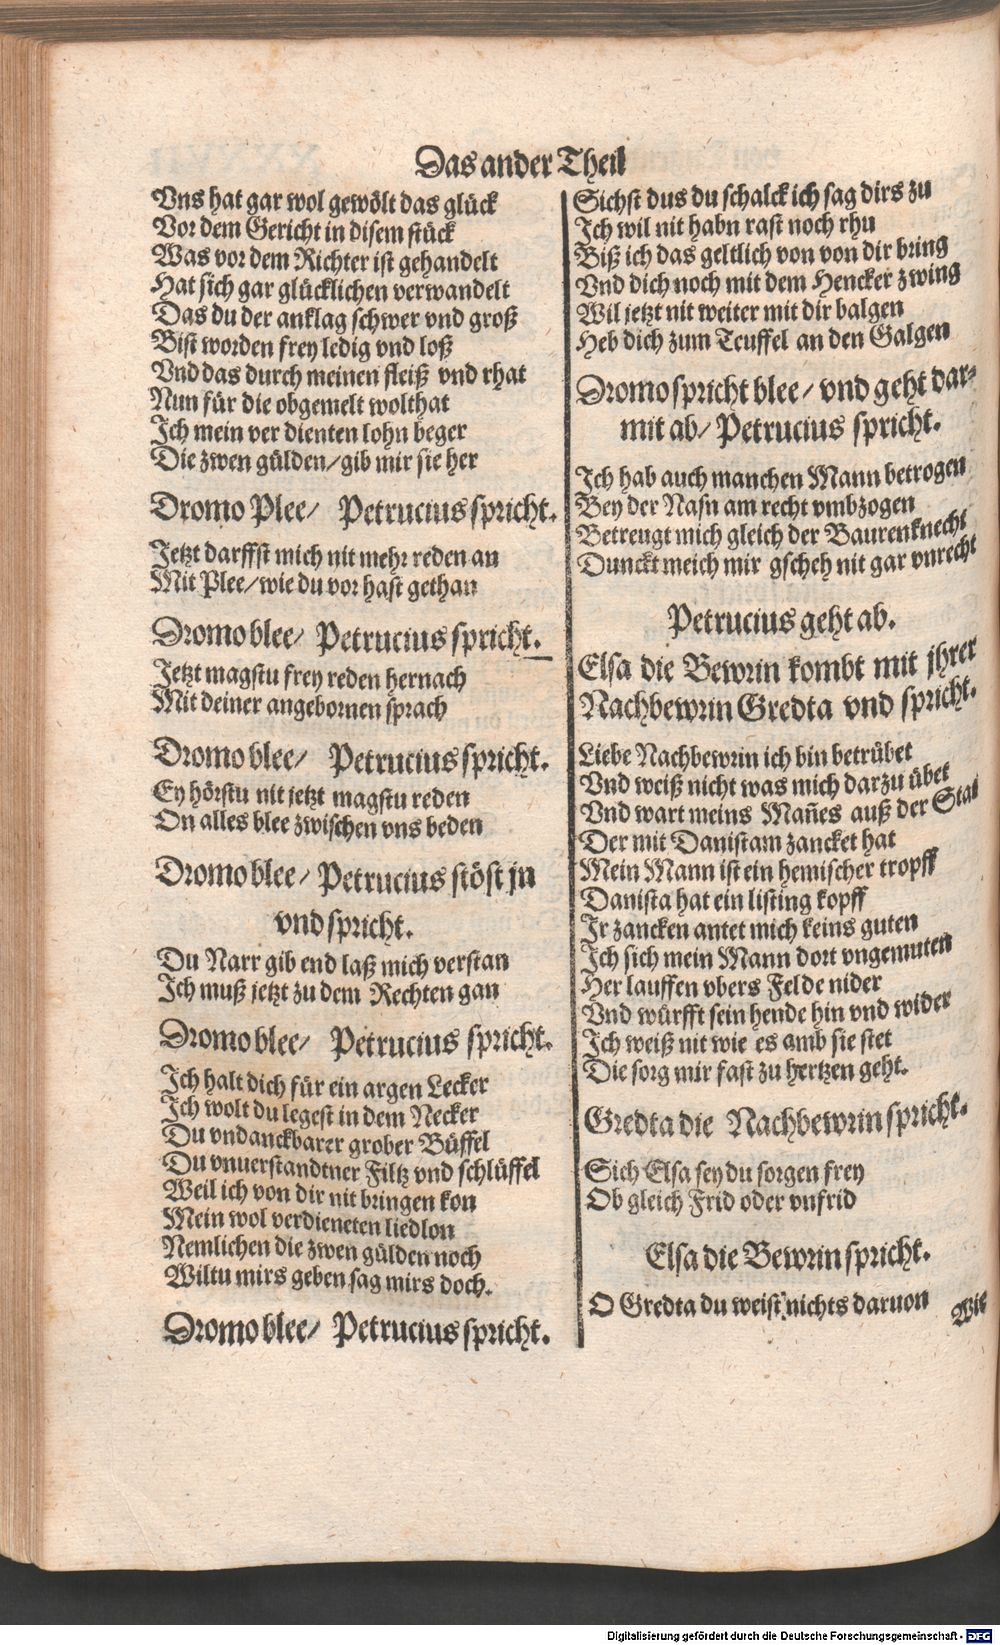 Das ander Theil
Vns hat gar wol gewölt das glück
Vor dem Gericht in disem stück
Was vor dem Richter ist gehandelt
Hat sich gar glücklichen verwandelt
Das du der anklag schwer vnd groß
Bist worden frey ledig vnd loß
Vnd das durch meinen fleiß vnd rhat
Nun für die obgemelt wolthat
Ich mein ver dienten lohn beger
Die zwen gülden/gib mir sie her
Dromo Plee/ Petrucius spricht.
Jetzt darffst mich nit mehr reden an
Mit Plee/wie du vor hast gethan
Dromo blee/ Petrucius spricht.
Jetzt magstu frey reden hernach
Mit deiner angebornen sprach
Dromo blee/ Petrucius spricht.
Ey hörstu nit jetzt magstu reden
On alles blee zwischen vns beden
Dromo blee/ Petrucius stöst jn
vnd spricht.
Du Narr gib end laß mich verstan
Ich muß jetzt zu dem Rechten gan
Dromo blee/ Petrucius spricht.
Ich halt dich für ein argen Lecker
Ich wolt du legest in dem Necker
Du vndanckbarer grober Büffel
Du vnuerstandtner Filtz vnd schlüffel
Weil ich von dir nit bringen kon
Mein wol verdieneten liedlon
Nemlichen die zwen gülden noch
Wiltu mirs geben sag mirs doch.
Dromo blee/ Petrucius spricht.
Sichst dus du schalck ich sag dirs zu
Ich wil nit habn rast noch rhu
Biß ich das geltlich von von dir bring
Vnd dich noch mit dem Hencker zwing
Wil jetzt nit weiter mit dir balgen
Heb dich zum Teuffel an den Galgen
Dromo spricht blee/ vnd geht dar-
mit ab/ Petrucius spricht.
Ich hab auch manchen Mann betrogen
Bey der Nasn am recht vmbzogen
Betreugt mich gleich der Baurenknecht
Dunckt meich mir gscheh nit gar vnrecht
Petrucius geht ab.
Elsa die Bewrin kombt mit jhrer
Nachbewrin Gredta vnd spricht.
Liebe Nachbewrin ich bin betrübet
Vnd weiß nicht was mich darzu übet
Vnd wart meins Mañes auß der Stat
Der mit Danistam zancket hat
Mein Mann ist ein hemischer tropff
Danista hat ein listing kopff
Ir zancken antet mich keins guten
Ich sich mein Mann dort vngemuten
Her lauffen vbers Felde nider
Vnd würfft sein hende hin vnd wider
Ich weiß nit wie es amb sie stet
Die sorg mir fast zu hertzen geht.
Gredta die Nachbewrin spricht.
Sich Elsa sey du sorgen frey
Ob gleich Frid oder vnfrid
Elsa die Bewrin spricht.
O Gredta du weist nichts daruon
Wie
Digitalisierung gefördert durch die Deutsche Forschungsgemeinschaft - DFG